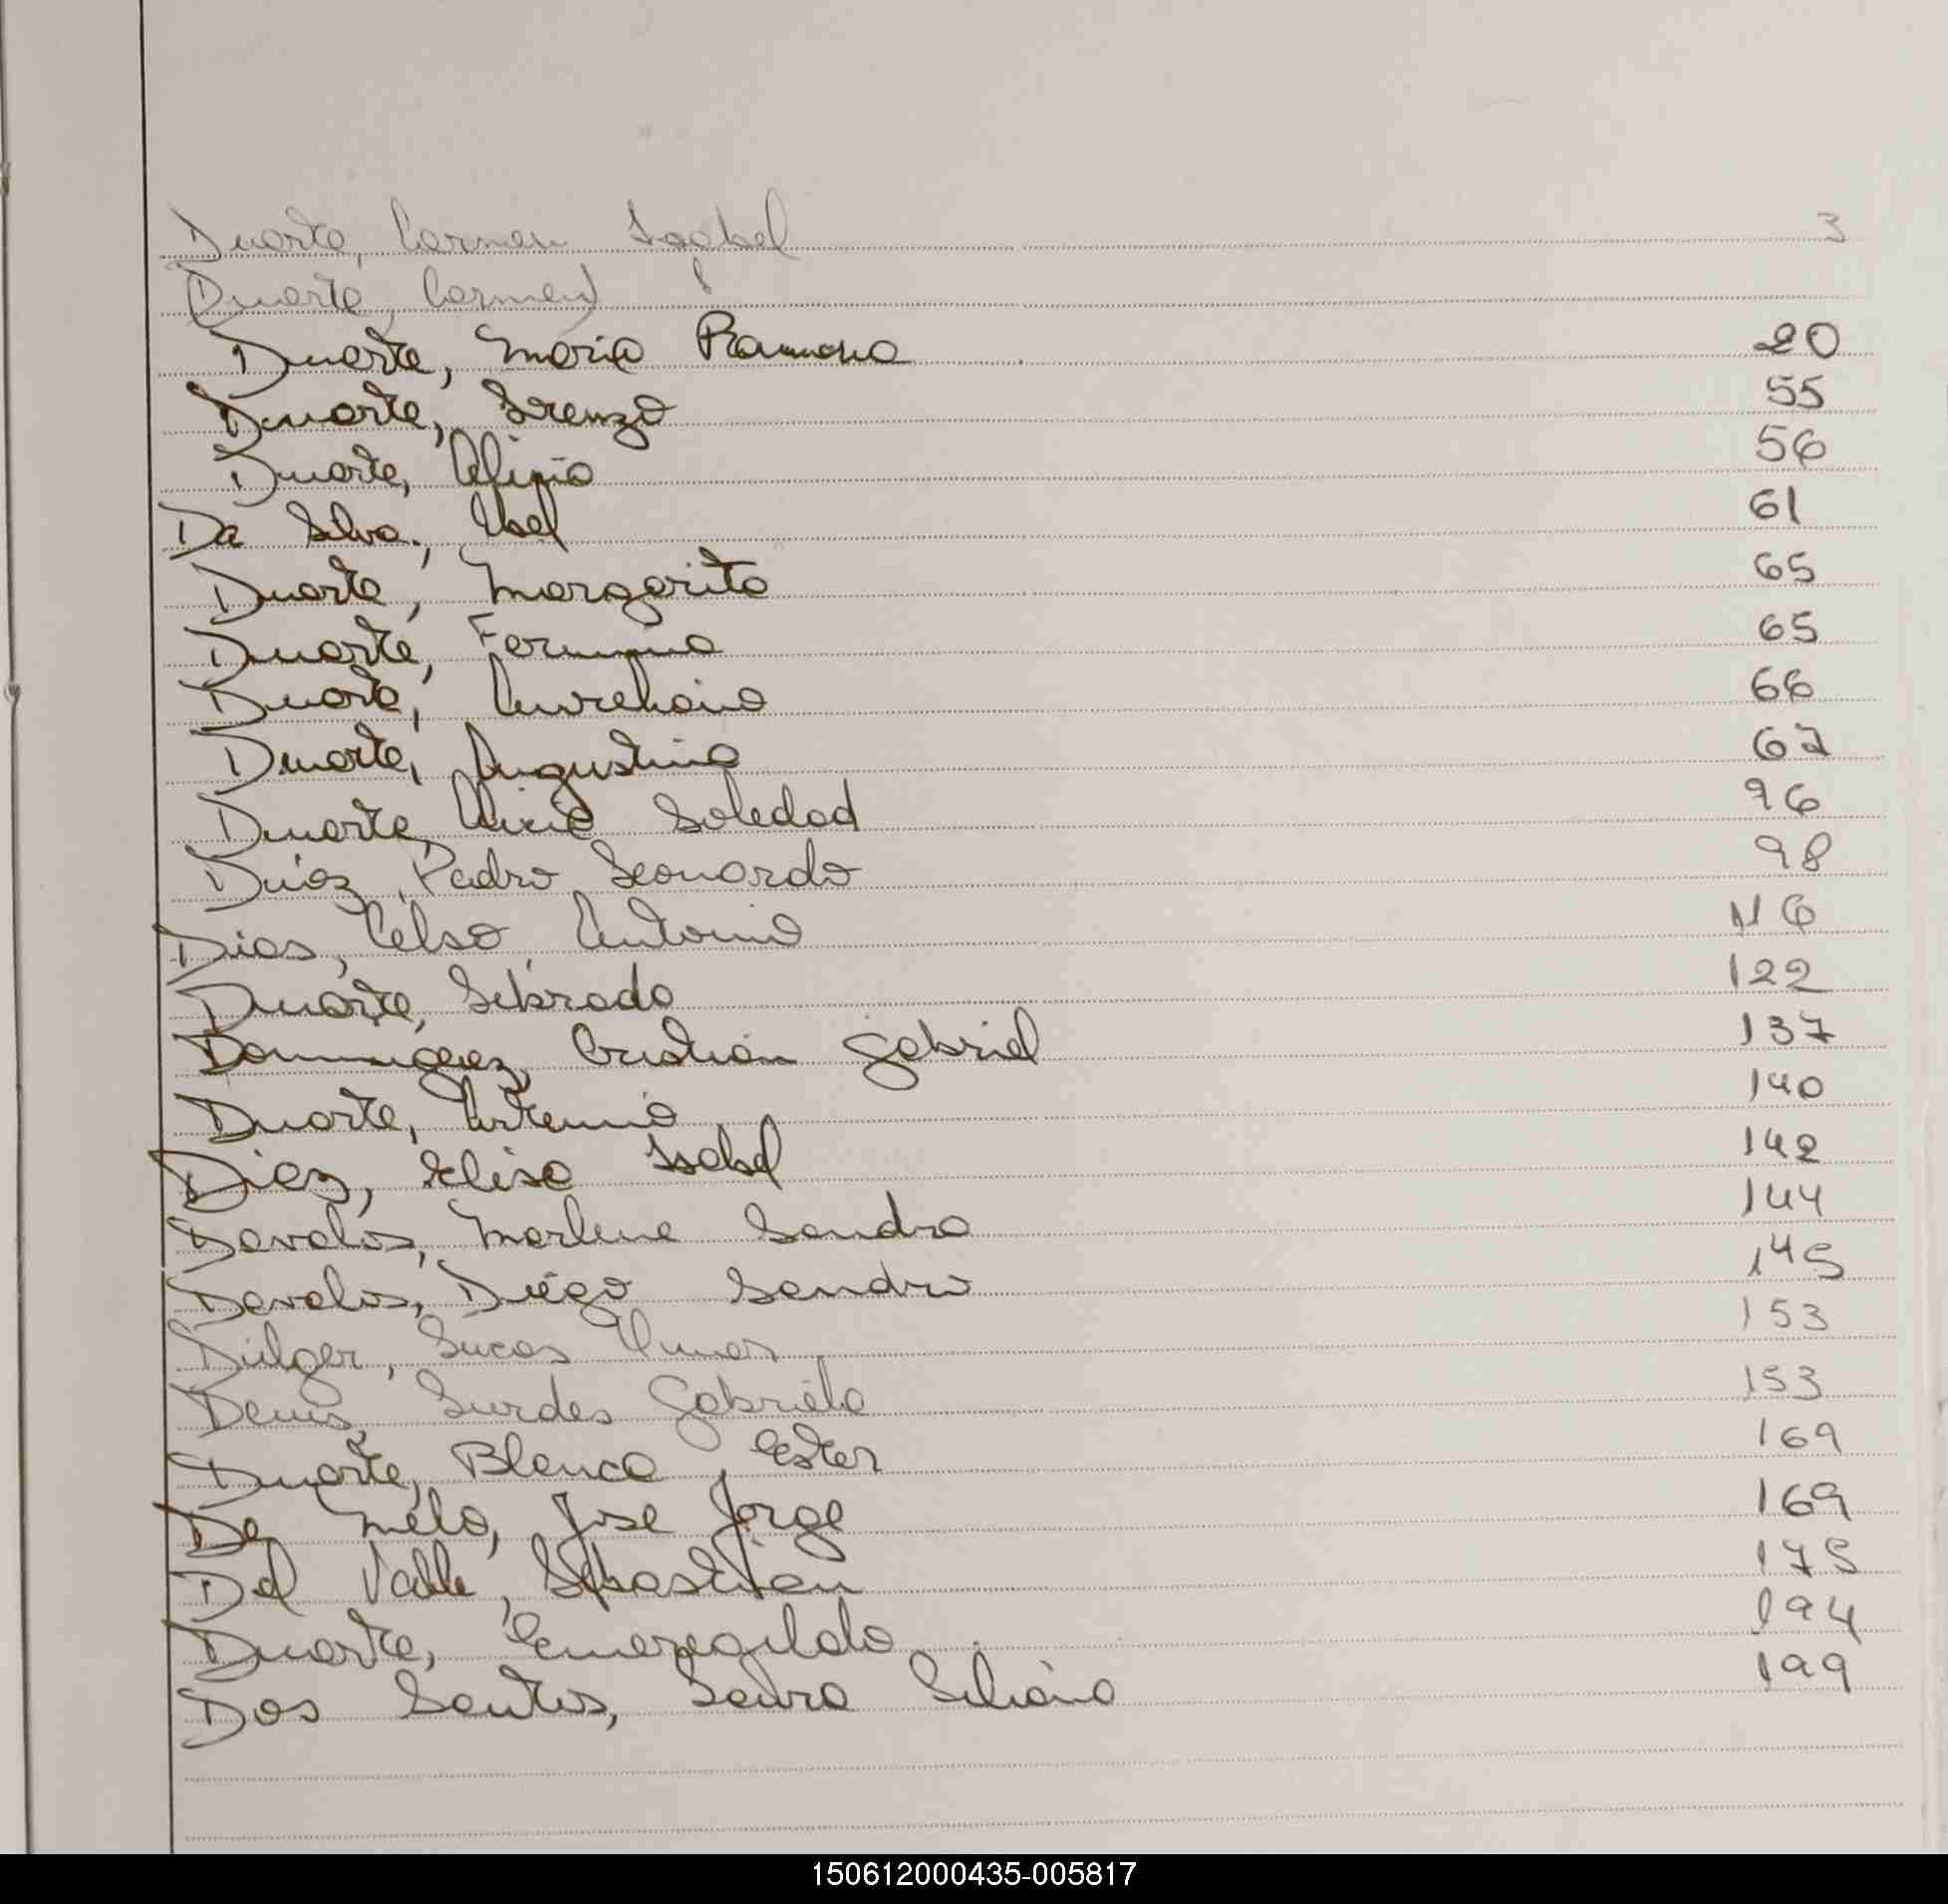 Duarte, Carmen Isabel 3
Duarte, Carmen
Duarte, Maria Ramona 20
Duarte, Lorenzo 55
Duarte, Alipio 56
Da Silva, Abel 61
Duarte, Margarita 65
Duarte, Fermina 65
Duarte, Aureliano 66
Duarte, Augustina 67
Duarte, Alicia Soledad 96
Duáz, Pedro Leonardo 98
Dias, Celso Antonio 116
Duarte, Librada 122
Dominguez, Cristian Gabriel 137
Duarte, Artemio 140
Diez, Elisa Isabel 142
Davalos, Marlene Sandra 144
Davalos, Diego Sandro 145
Dulger, Lucas 153
Denis, Lurdes Gabriela 153
Duarte, Blanca Ester 169
De Melo, Jose Jorge 169
Del Valle, Sebastian 175
Duarte, Emeregilda 194
Dos Santos, Laura Liliana 199
150612000435-005817